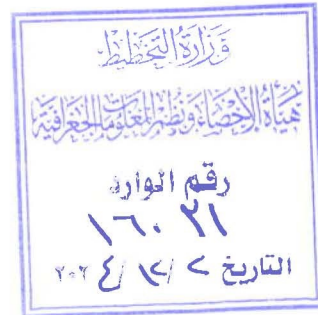 وزارة التخطيط
هيأة الإحصاء ونظم المعلومات الجغرافية
رقم الوارد
١٦٠٢١
التاريخ ٢ /١٢/ ٢٠٢٤